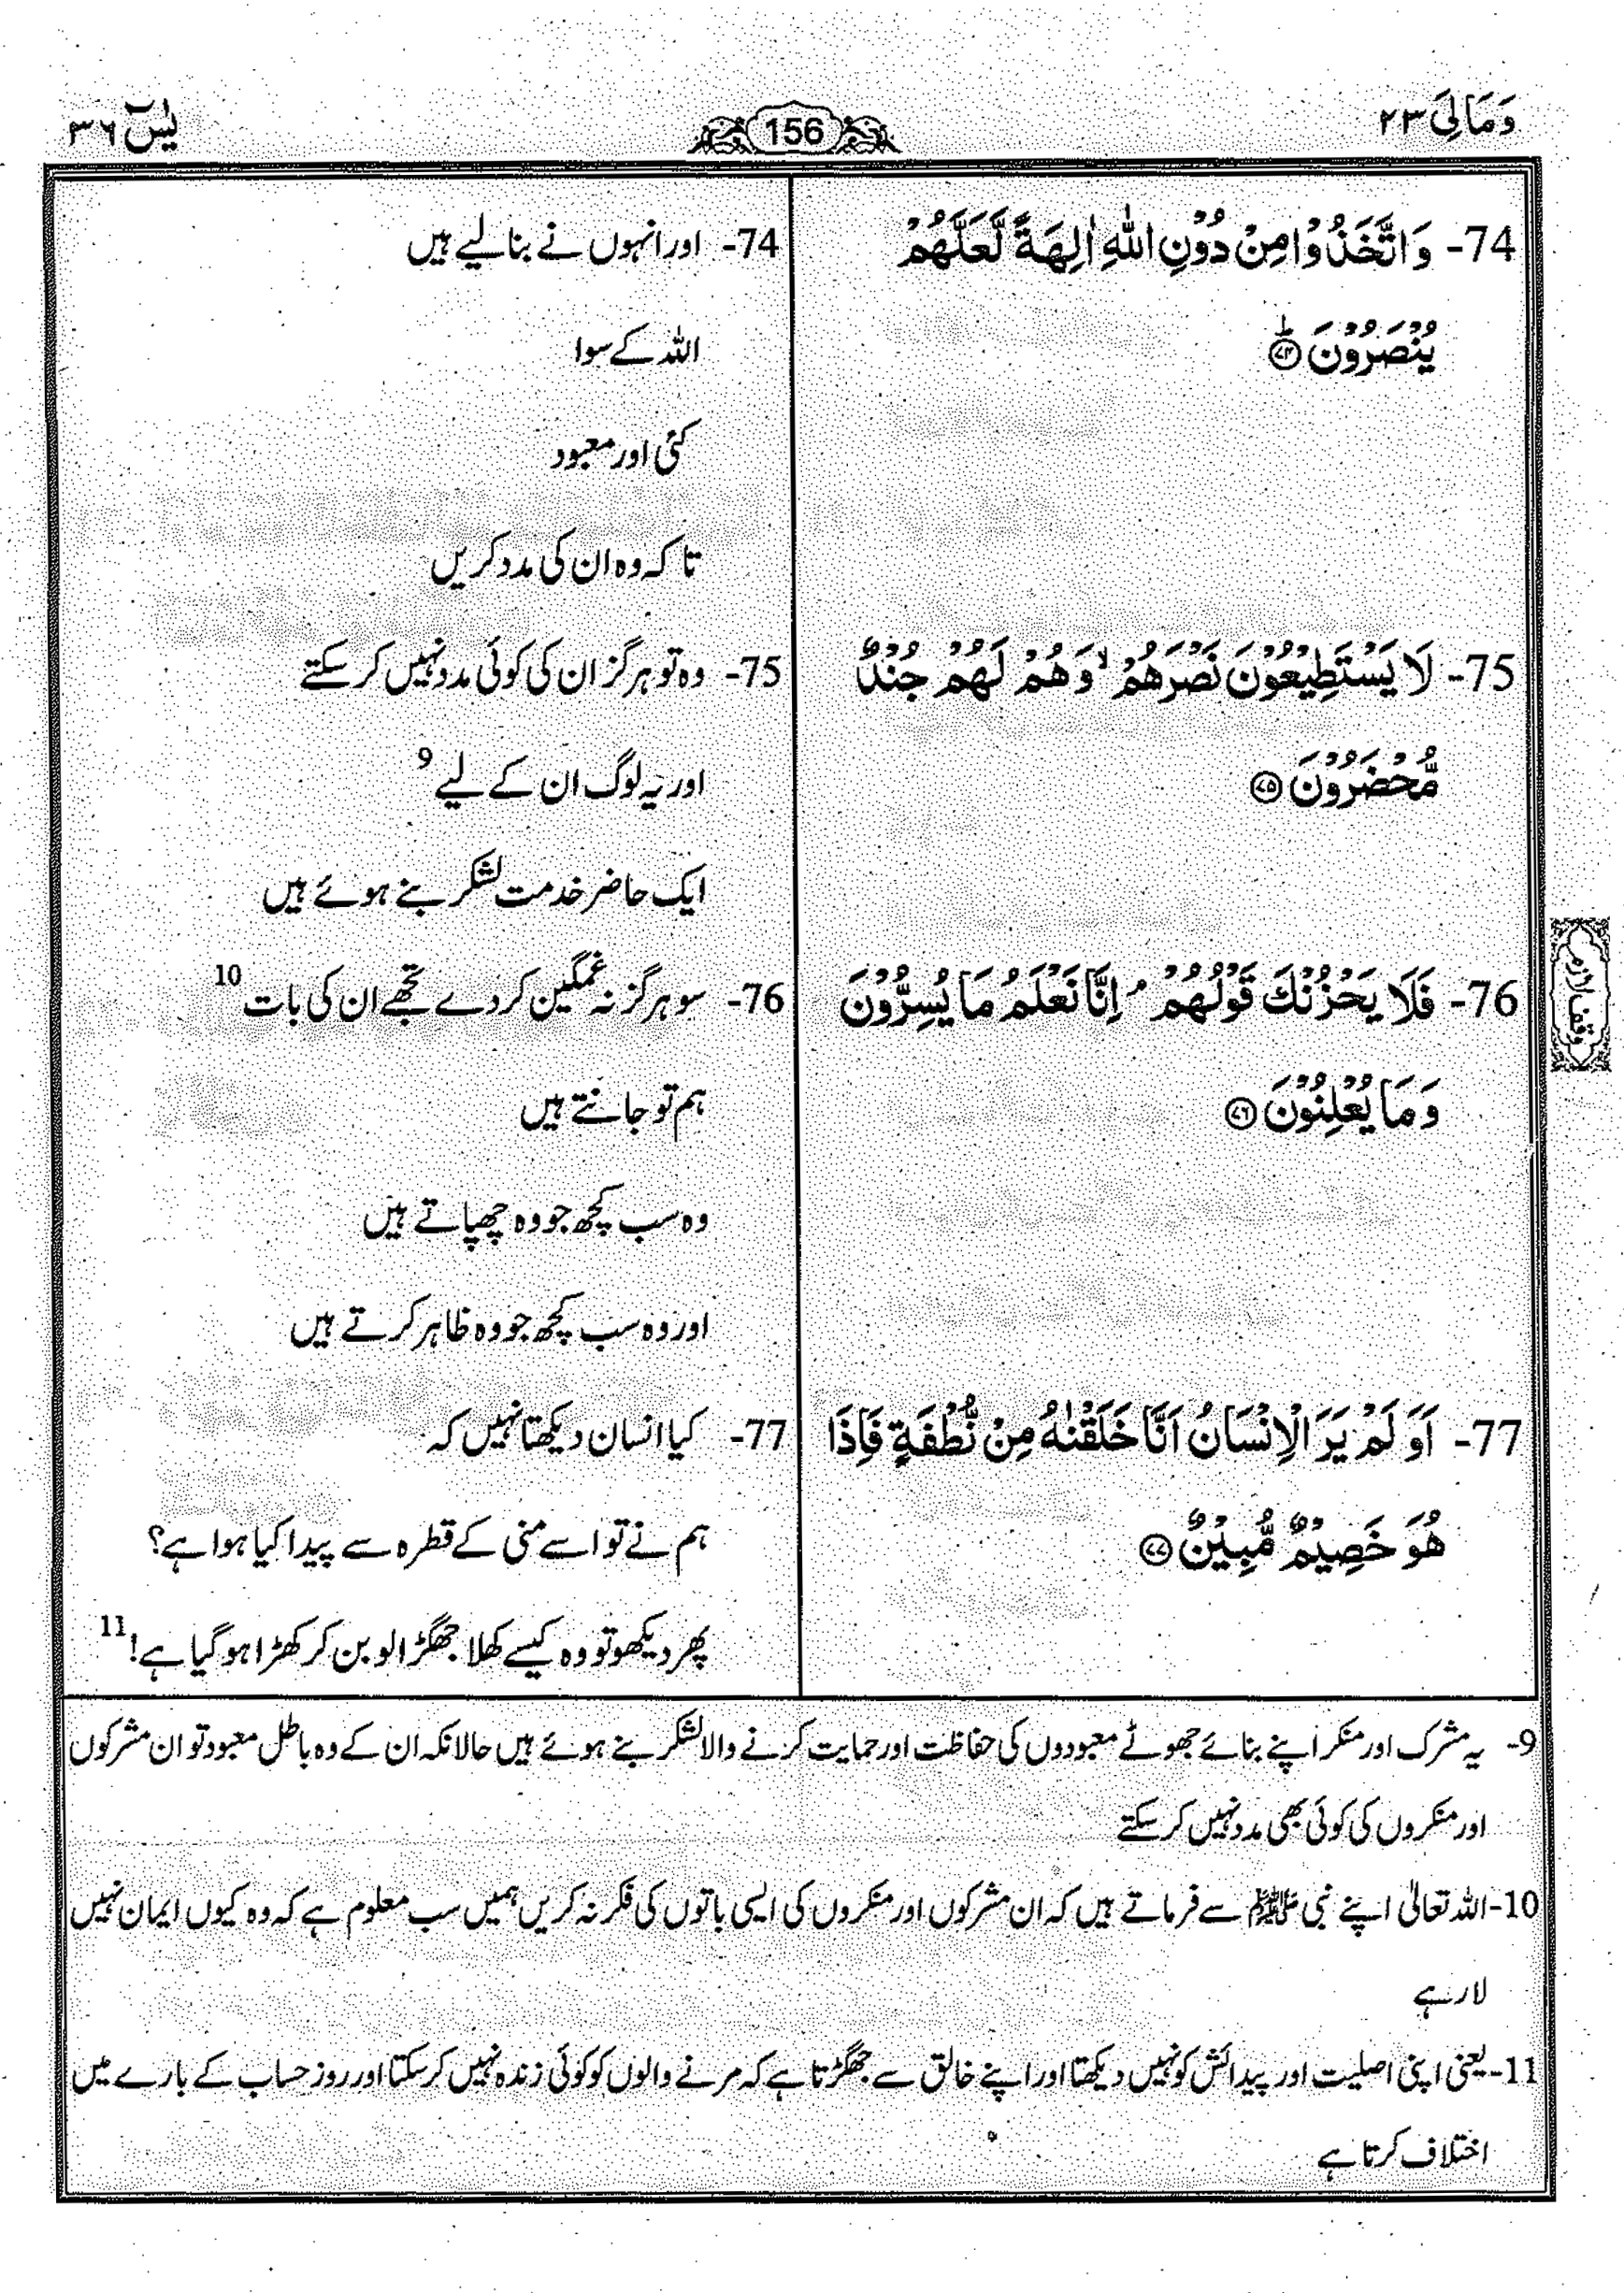 وَمَالِیَ ۲۳
156
یٰسٓ ۳۶
74- وَاتَّخَذُوْا مِنْ دُوْنِ اللّٰهِ اٰلِهَةً لَّعَلَّهُمْ
یُنْصَرُوْنَ ﴿۷۴﴾ؕ
74- اور انہوں نے بنا لیے ہیں
اللہ کے سوا
کئی اور معبود
تا کہ وہ ان کی مدد کریں
75- لَا یَسْتَطِیْعُوْنَ نَصْرَهُمْ ۙ وَهُمْ لَهُمْ جُنْدٌ
مُّحْضَرُوْنَ ﴿۷۵﴾
75- وہ تو ہرگز ان کی کوئی مدد نہیں کر سکتے
اور یہ لوگ ان کے لیے 9
ایک حاضر خدمت لشکر بنے ہوئے ہیں
76- فَلَا یَحْزُنْكَ قَوْلُهُمْ ۘ اِنَّا نَعْلَمُ مَا یُسِرُّوْنَ
وَمَا یُعْلِنُوْنَ ﴿۷۶﴾
وقف لازم
76- سو ہرگز نہ غمگین کر دے تجھے ان کی بات 10
ہم تو جانتے ہیں
وہ سب کچھ جو وہ چھپاتے ہیں
اور وہ سب کچھ جو وہ ظاہر کرتے ہیں
77- اَوَلَمْ یَرَ الْاِنْسَانُ اَنَّا خَلَقْنٰهُ مِنْ نُّطْفَةٍ فَاِذَا
هُوَ خَصِیْمٌ مُّبِیْنٌ ﴿۷۷﴾
77- کیا انسان دیکھتا نہیں کہ
ہم نے تو اسے منی کے قطرہ سے پیدا کیا ہوا ہے؟
پھر دیکھو تو وہ کیسے کھلا جھگڑالو بن کر کھڑا ہو گیا ہے! 11
9- یہ مشرک اور منکر اپنے بنائے جھوٹے معبودوں کی حفاظت اور حمایت کرنے والا لشکر بنے ہوئے ہیں حالانکہ ان کے وہ باطل معبود تو ان مشرکوں
اور منکروں کی کوئی بھی مدد نہیں کر سکتے
10- اللہ تعالیٰ اپنے نبی ﷺ سے فرماتے ہیں کہ ان مشرکوں اور منکروں کی ایسی باتوں کی فکر نہ کریں ہمیں سب معلوم ہے کہ وہ کیوں ایمان نہیں
لا رہے
11- یعنی اپنی اصلیت اور پیدائش کو نہیں دیکھتا اور اپنے خالق سے جھگڑتا ہے کہ مرنے والوں کو کوئی زندہ نہیں کر سکتا اور روز حساب کے بارے میں
اختلاف کرتا ہے